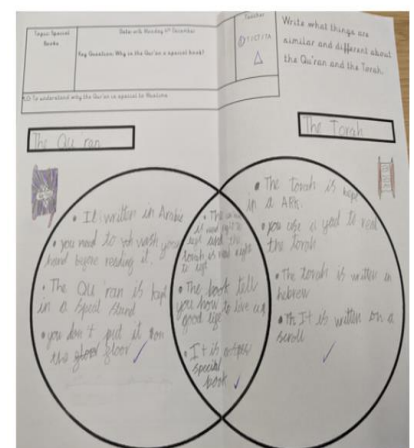 Topic: Special Books
Key Question: Why is the Qur'an a special book?
LO: To understand why the Qur'an is special to Muslims
Teacher
Write what things are
similar and different about
the Qu'ran and the Torah.
The Qu ran
The Torah
• It written in Arabic
• you need to wash your
hand before reading it.
• The Qu'ran is kept
in a stand
• you don't put it on
the floor
right to
left and the
torah is read right
to left
• The book tell
you how to
good life
• It is
special
book
• The torah is kept
in a ARK.
• you use a yad to read
the torah
• The torah is written in
hebrew
• It is written on a
scroll